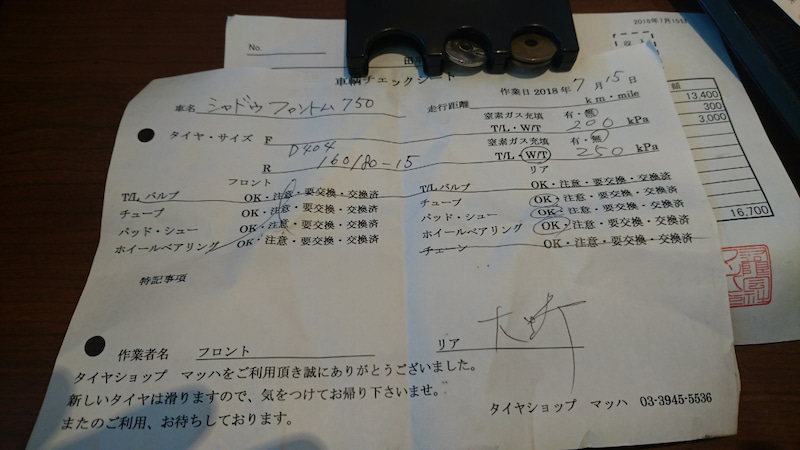 2018年7月15日
No.
車輌チェックシート
作業日 2018年 7月 15日
額
車名 シャドウファントム 750
走行距離 km・mile
13,400
タイヤ・サイズ F
窒素ガス充填 有・無
300
T/L・W/T 200 kPa
3,000
D404
窒素ガス充填 有・無
R 160/80-15
T/L・W/T 250 kPa
フロント
T/L バルブ OK・注意・要交換・交換済
チューブ OK・注意・要交換・交換済
パッド・シュー OK・注意・要交換・交換済
ホイールベアリング OK・注意・要交換・交換済
リア
T/L バルブ OK・注意・要交換・交換済
チューブ OK・注意・要交換・交換済
パッド・シュー OK・注意・要交換・交換済
ホイールベアリング OK・注意・要交換・交換済
チェーン OK・注意・要交換・交換済
16,700
特記事項
作業者名 フロント
リア
タイヤショップ マッハをご利用頂き誠にありがとうございました。
新しいタイヤは滑りますので、気をつけてお帰り下さいませ。
またのご利用、お待ちしております。
タイヤショップ マッハ 03-3945-5536